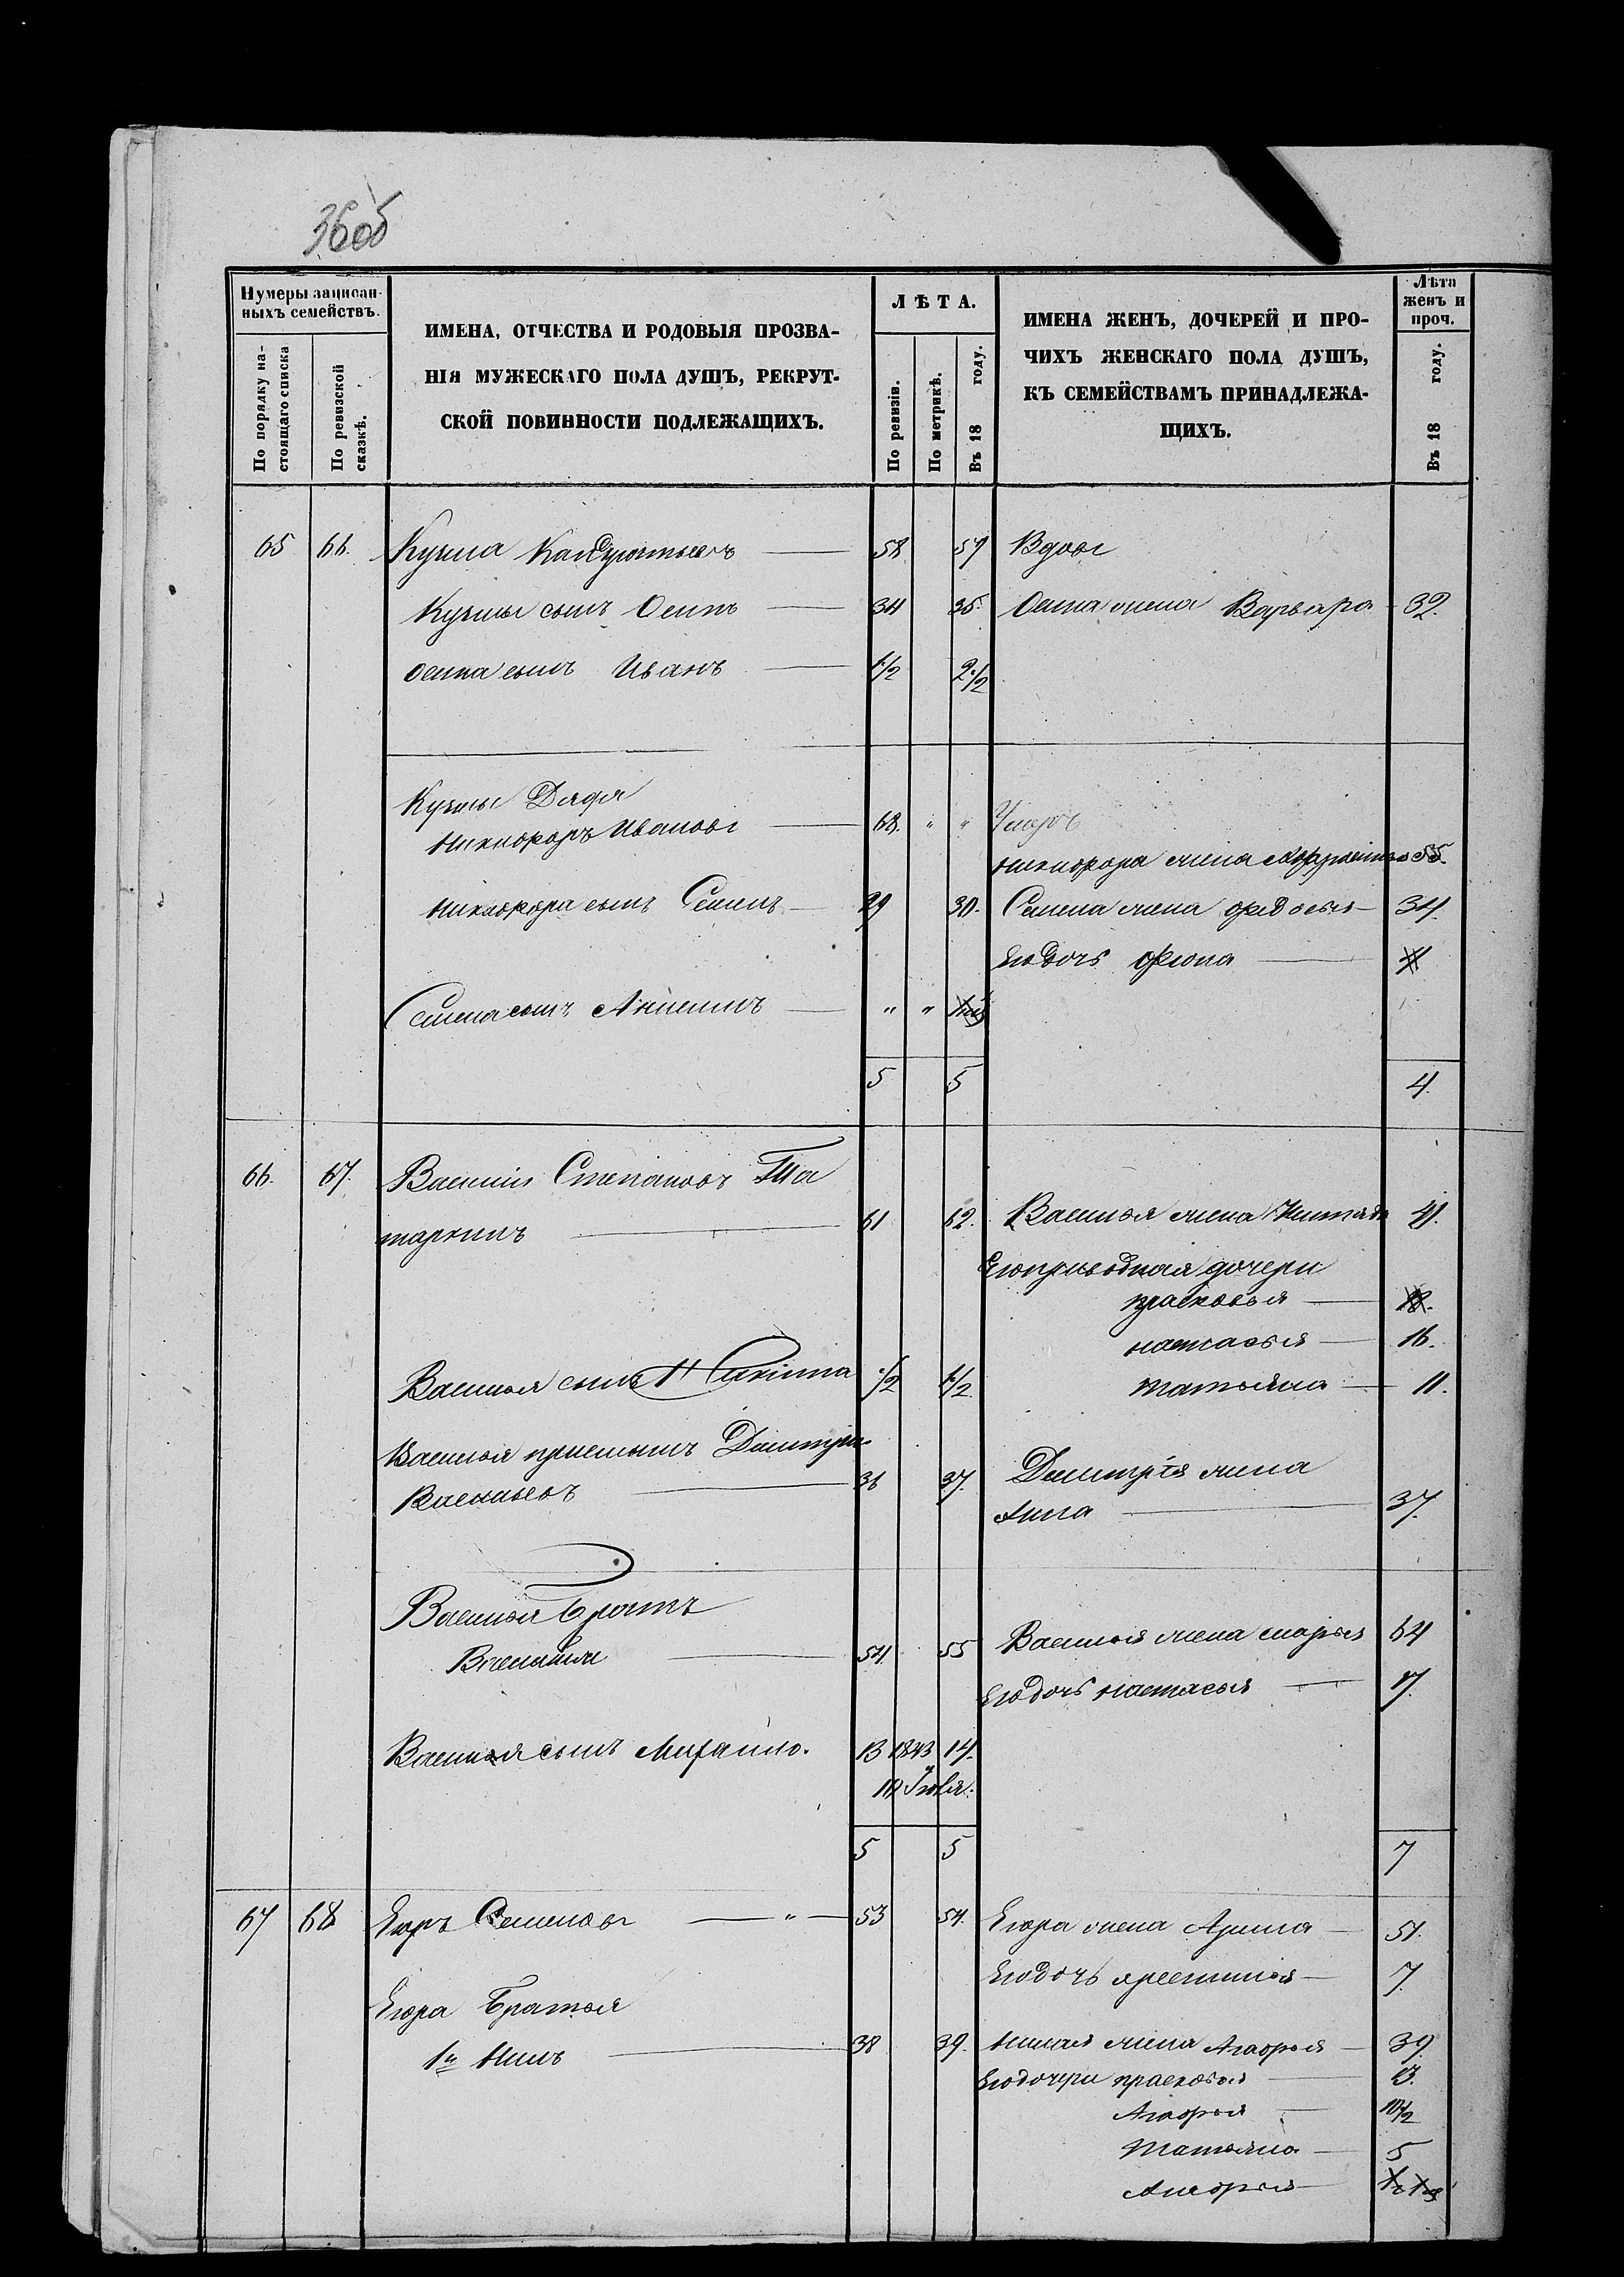 36об
Нумеры записан-
ныхъ семействъ.
По порядку на-
стоящаго списка
По ревизской
сказкѣ.
ИМЕНА, ОТЧЕСТВА И РОДОВЫЯ ПРОЗВА-
НІЯ МУЖЕСКАГО ПОЛА ДУШЪ, РЕКРУТ-
СКОЙ ПОВИННОСТИ ПОДЛЕЖАЩИХЪ.
ЛѢТА.
По ревизіи.
По метрикѣ.
Въ 18 году.
ИМЕНА ЖЕНЪ, ДОЧЕРЕЙ И ПРО-
ЧИХЪ ЖЕНСКАГО ПОЛА ДУШЪ,
КЪ СЕМЕЙСТВАМЪ ПРИНАДЛЕЖА-
ЩИХЪ.
Лѣта
женъ и
проч.
Въ 18 году.
65 66. Кузма Кандратьевъ 58 59 Вдовъ
Кузмы сынъ Осипъ 34 35. Осипа жена Варвара 32.
Осипа сынъ Иванъ 1/2 2 1/2
Кузмы Дядя
Никифоръ Ивановъ 68. " " Умеръ
Никифора жена 55.
Никифора сынъ Семенъ 29 30. Семена жена Федосья 34.
Его дочь Фекла
Семена сынъ " "
5 5 4.
66. 67. Василій Степановъ Та
таркинъ 61 62. Василья жена 41.
Его приводная дочери
Прасковья 18.
Настасья 16.
Василья сынъ Никита 1/2 1 1/2 Татьяна 11.
Василья приемышъ Дмитри
Васильевъ 36 37. Дмитрія жена
Анна 37.
Василья Братъ
Василий 54. 55 Василья жена Марья 64
Его дочь Настасья 17.
Василья сынъ Михайло. 13 1843 14.
Іюля.
5 5 7
67 68 Егоръ Семеновъ " 53 54. Егора жена Арина 51.
Его дочь 7.
Егора Братья
1й Нилъ 38 39. Нила жена Агафья 39.
Его дочери Прасковья 13.
Агафья 10 1/2
Татьяна 5